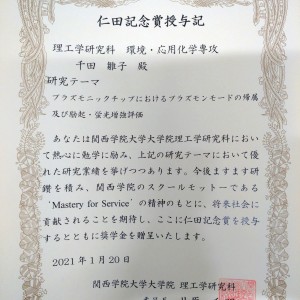 仁田記念賞授与記
理工学研究科　環境・応用化学専攻
千田　雛子　殿
研究テーマ
プラズモニックチップにおけるプラズモンモードの帰属
及び励起・蛍光増強評価
あなたは関西学院大学大学院理工学研究科におい
て熱心に勉学に励み、上記の研究テーマにおいて優
れた研究業績を挙げつつあります。今後ますます研
鑽を積み、関西学院のスクールモットーである
‘Mastery for Service’の精神のもとに、将来社会に
貢献されることを期待し、ここに仁田記念賞を授与
するとともに奨学金を贈呈いたします。
2021年1月20日
関西学院大学大学院 理工学研究科